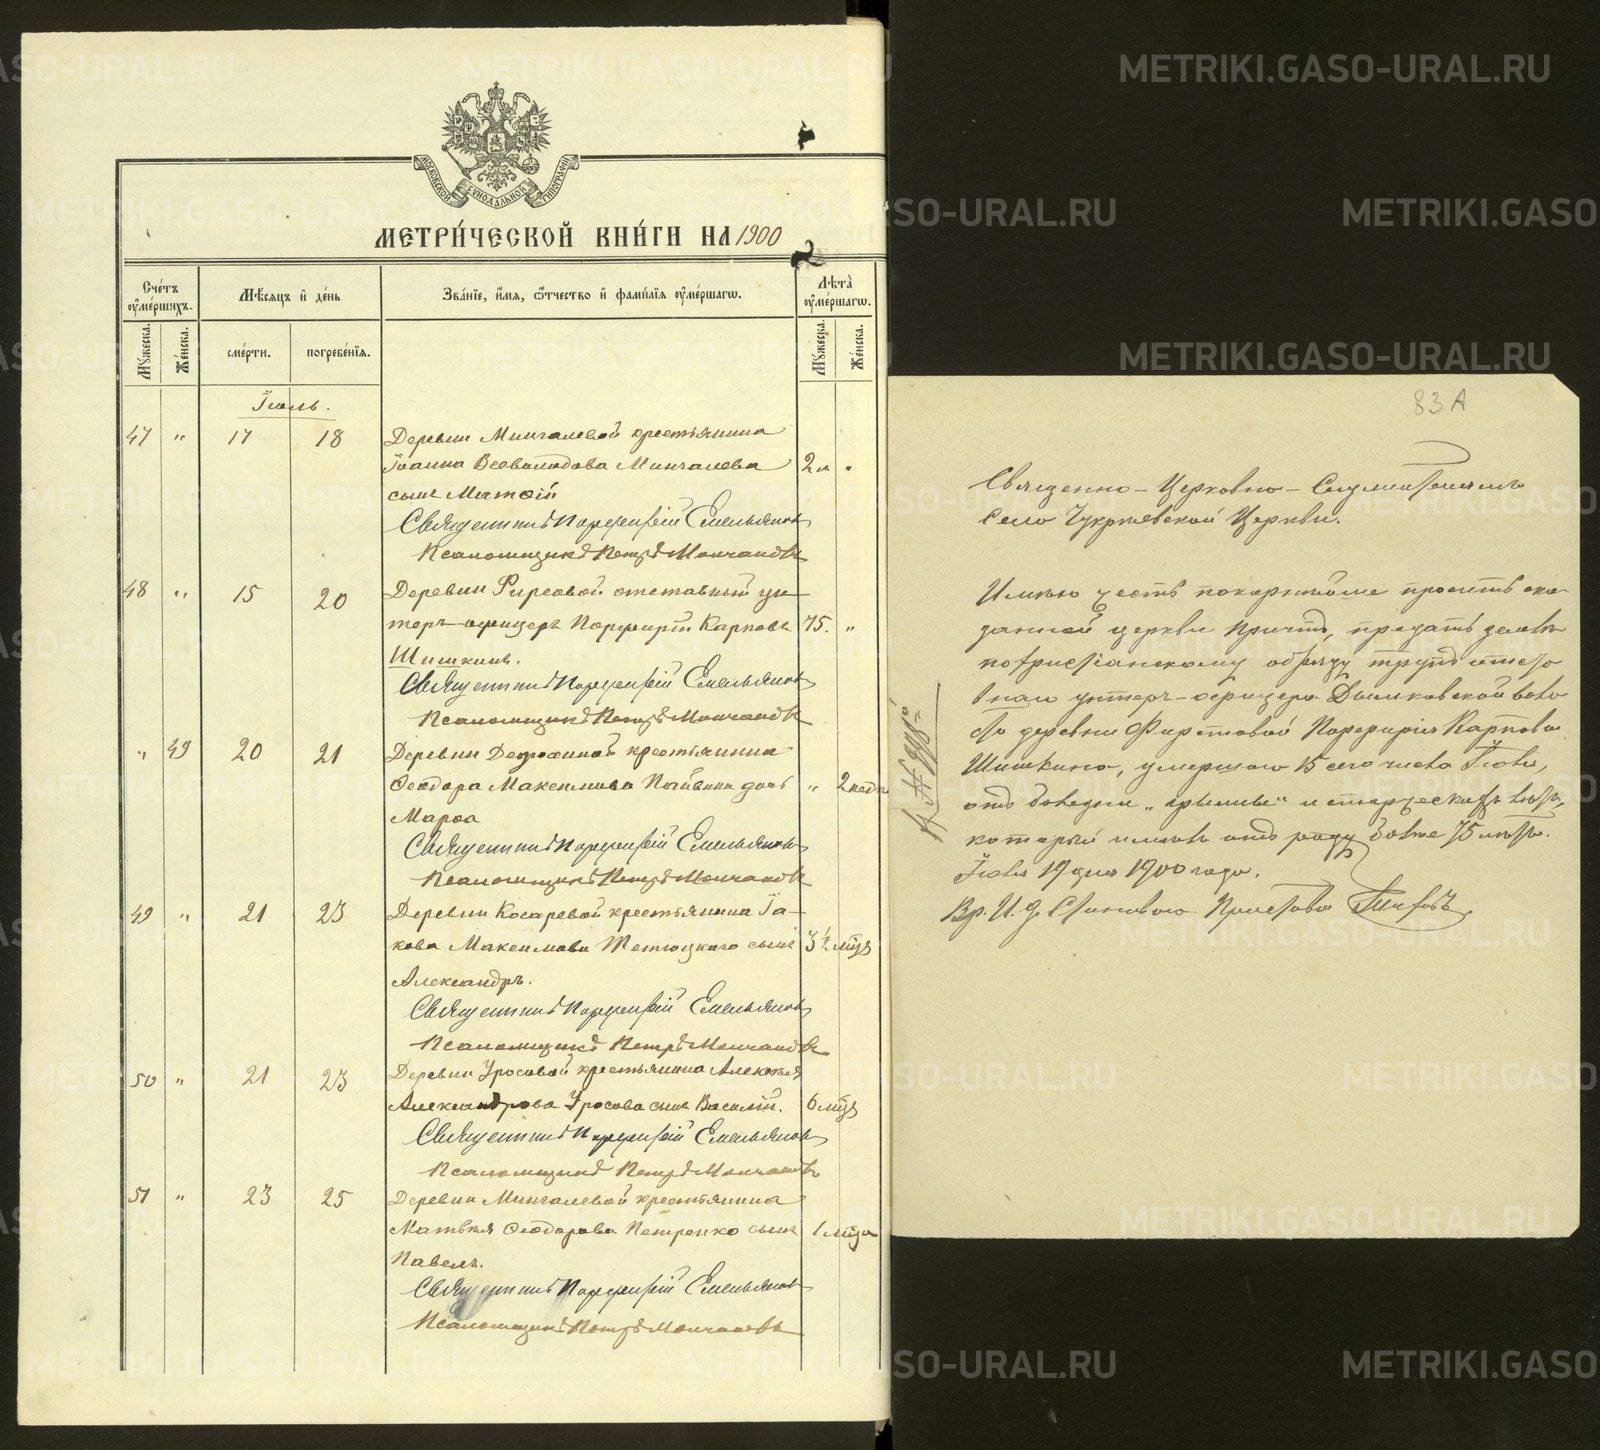 МОСКОВСКОЙ СѴНОДАЛЬНОЙ ТИПОГРАФІИ
МЕТРИ́ЧЕСКОЙ КНИ́ГИ НА 1900
Сче́тъ ᲂу҆ме́ршихъ.
Мѣ́сяцъ и҆ де́нь
Зва́нїе, и҆́мя, ѻ҆́тчество и҆ фами́лїя ᲂу҆ме́ршагѡ.
Лѣта̀ ᲂу҆ме́ршагѡ.
Мꙋ́жеска. Же́нска.
сме́рти. погребе́нїя.
Мꙋ́жеска. Же́нска.
Іюль.
47 " 17 18 Деревни Мингалевой крестьянина
Іоанна Всеволодова Мингалева 2 л "
сынъ
Священникъ Порфирій Емельяновъ
Псаломщикъ Петръ Молчановъ
48 " 15 20 Деревни Фирсовой отставный ун-
теръ-офицеръ Порфирій Карповъ 75. "
Шишкинъ.
Священникъ Порфирій Емельяновъ
Псаломщикъ Петръ Молчановъ
" 49 20 21 Деревни крестьянина
Ѳеодора Максимова дочь " 2 нед
Марѳа
Священникъ Порфирій Емельяновъ
Псаломщикъ Петръ Молчановъ
49 " 21 23 Деревни Косаревой крестьянина Іа-
кова Максимова сынъ 3½ мѣс
Александръ.
Священникъ Порфирій Емельяновъ
Псаломщикъ Петръ Молчановъ
50 " 21 23 Деревни Уросовой крестьянина Алексѣя
Александрова Уросова сынъ Василій. 6 мѣс
Священникъ Порфирій Емельяновъ
Псаломщикъ Петръ Молчановъ
51 " 23 25 Деревни Мингалевой крестьянина
Матвѣя Ѳеодорова Петренко сынъ 1 мѣсяца
Павелъ.
Священникъ Порфирій Емельяновъ
Псаломщикъ Петръ Молчановъ
83 А
Священно-Церковно-Служителямъ
Села Чукреевской Церкви.
Имѣю честь покорнѣйше просить ска-
занной церкви Причтъ, предать землѣ
по христіанскому обряду трупъ отста
внаго унтеръ-офицера воло
сти деревни Фирсовой Порфирія Карпова
Шишкина, умершаго 15 сего числа Іюля,
отъ болѣзни „грыжи" и старческихъ лѣтъ,
который имѣлъ отъ роду болѣе 75 лѣтъ.
Іюля 19 дня 1900 года.
Вр. И. д. Становаго Пристава
METRIKI.GASO-URAL.RU